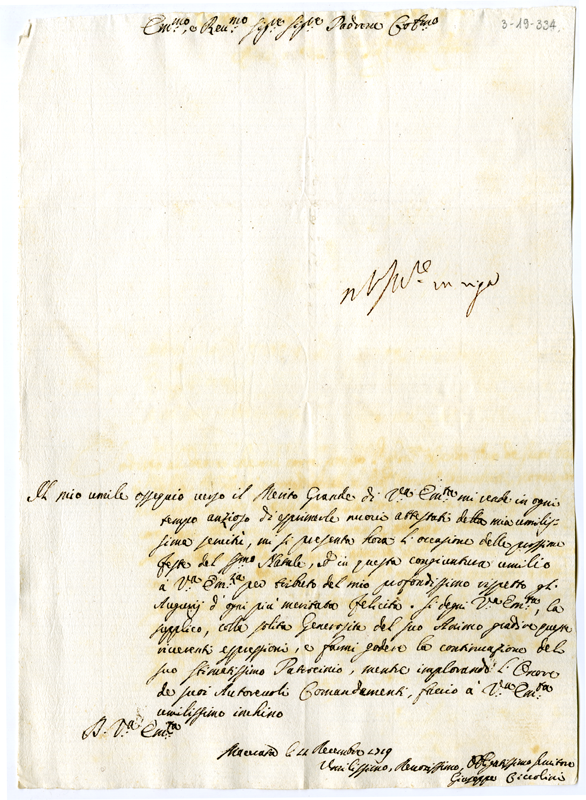 3-19-334.
Em.mo, e Reu.mo Sig.re Sig.re Padrone Col.mo
in riga
Il mio umile ossequio verso il Merito Grande di V.ra Em.za mi rende in ogni
tempo anzioso di esprimerle nuovi attestati della mia umilis=
sima seruitù, mi si presenta hora l'occasione delle prossime
feste del S.mo Natale, et in questa congiuntura umilio
à V.ra Em.za per tributo del mio profondissimo rispetto gli
Augurij d'ogni più meritata felicità. Si degni V.ra Em.za, la
supplico, colla solita Generosità del suo Animo gradire queste
riuerenti espressioni, e farmi godere la continuazione del
suo stimatissimo Patrocinio, mentre implorando l'Onore
de suoi Autoreuoli Comandamenti, faccio à V.ra Em.za
umilissimo inchino
D. V.ra Em.za
Macerata li Decembre 1719
Vmilissimo, Deuotissimo, Obligatissimo Seruitore
Giuseppe Ciccolini